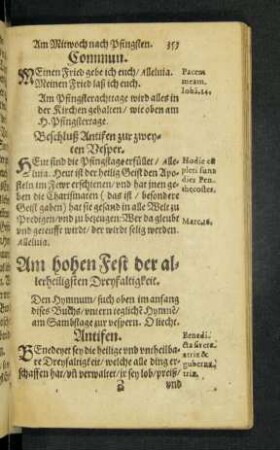 Am Mitwoch nach Pfingsten. 357
Commun.
MEinen Fried gebe ich euch / Alleluia.
Meinen Fried laß ich euch.
Pacem
meam.
Am Pfingsterachttage wird alles in
der Kirchen gehalten / wie oben am
H. Pfingstertage.
Beschluß Antifen zur zwey-
ten Vesper.
HEut sind die Pfingstage erfüllet / Alle-
luia. Heut ist der heilig Geist den Apo-
steln im Fewr erschienen / vnd hat jnen ge-
ben die Charismaten ( das ist / besondere
Geistl gaben ) hat sie gesand in alle Welt zu
Predigen / vnd zu bezeugen: Wer da glaubt
vnd geteufft wird / der wirde selig werden.
Alleluia.
Hodie cō
pleti sunt
dies Pen-
thecostes.
Marc. 16.
Am hohen Fest der al-
lerheiligsten Dreyfaltigkeit.
Den Hymnum / such oben im anfang
dises Buchs / vntern teglichē Hymnē /
am Sambstage zur vespern. O liecht.
Antifen.
BEnedeyet sey die heilige vnd vnteilba-
re Dreyfaltigkeit / welche alle ding er-
schaffen hat / vn̄ verwaltet / jr sey lob / preiß /
Benedi-
cta sit cre
atrix &
gubernа
trix.
vnd